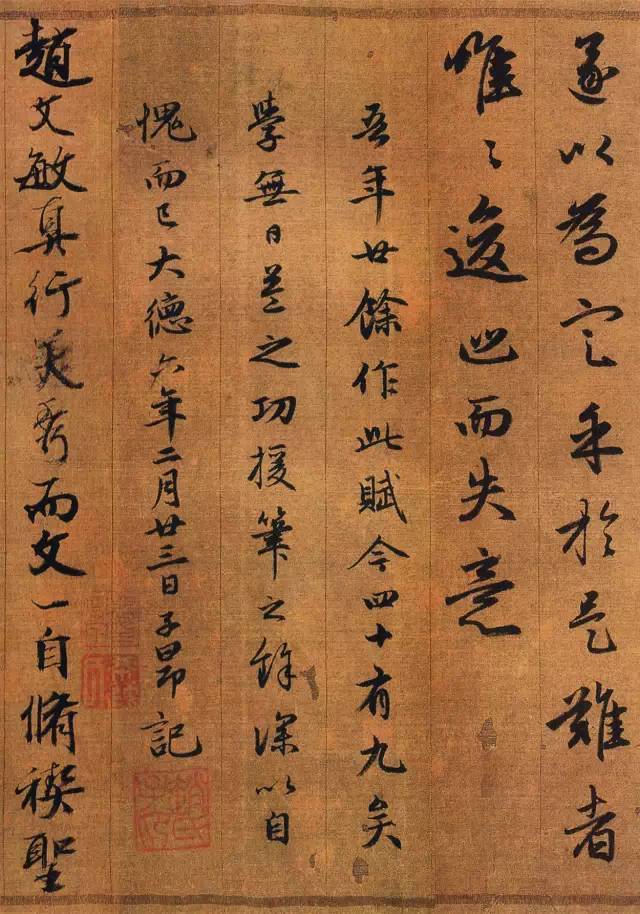 遂以為定乎於是難者
唯〻逡巡而失意
吾年廿餘作此賦今四十有九矣
學無日益之功援筆之餘深以自
愧而已大德六年二月廿三日子昂記
趙氏子昂
趙文敏真行美秀而文一自脩禊聖